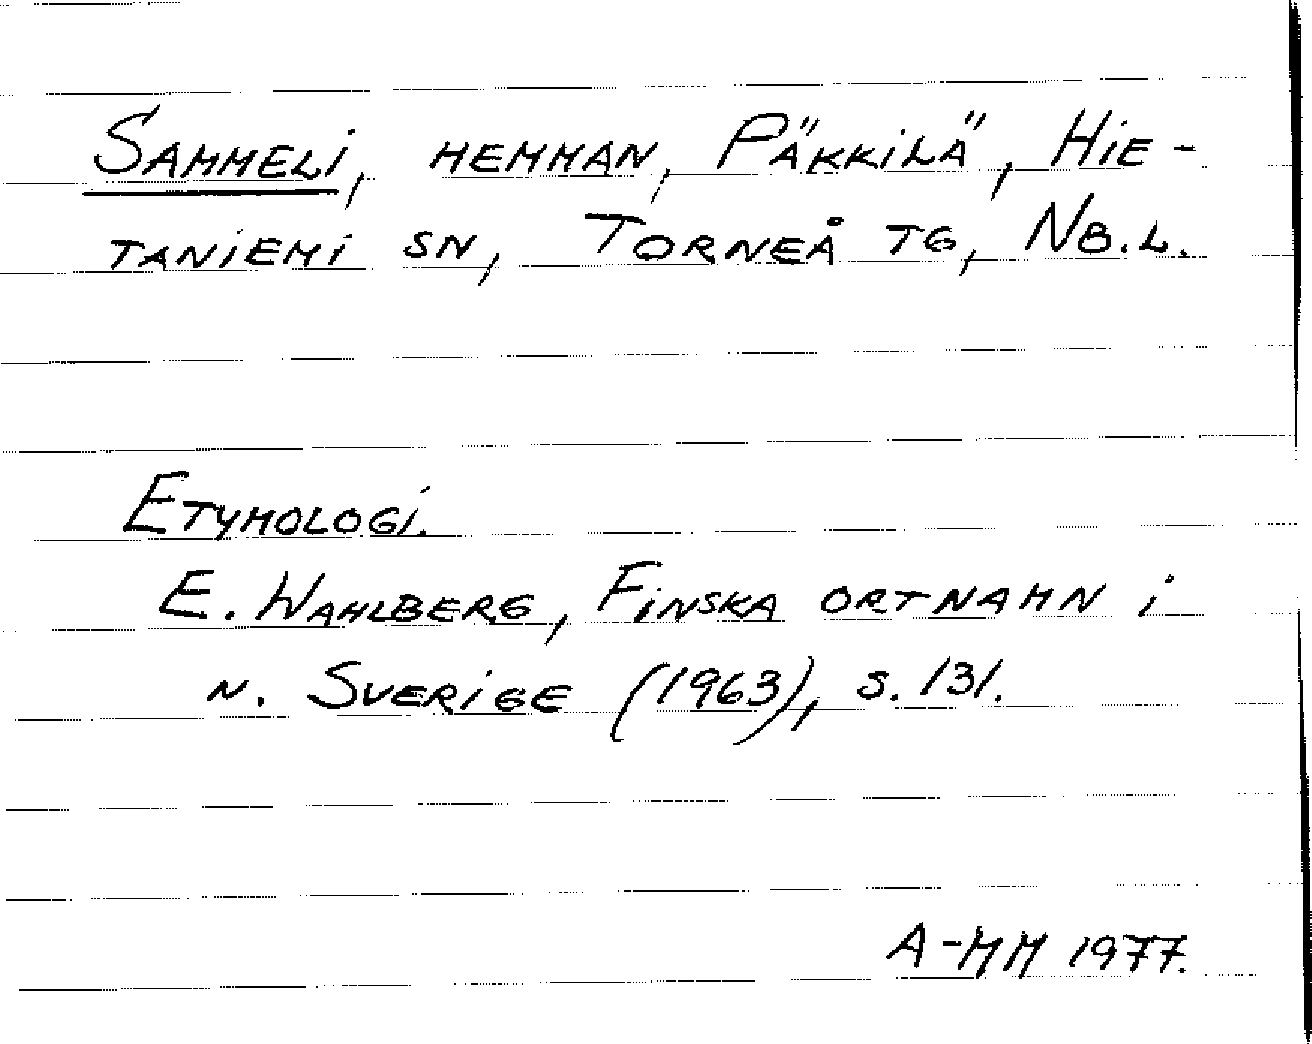 Sammeli, hemman, Päkkilä, Hie-
taniemi sn, Torneå tg, Nb.l.
Etymologi.
E. Wahlberg, Finska ortnamn i
n. Sverige (1963), s. 131.
A-MM 1977.